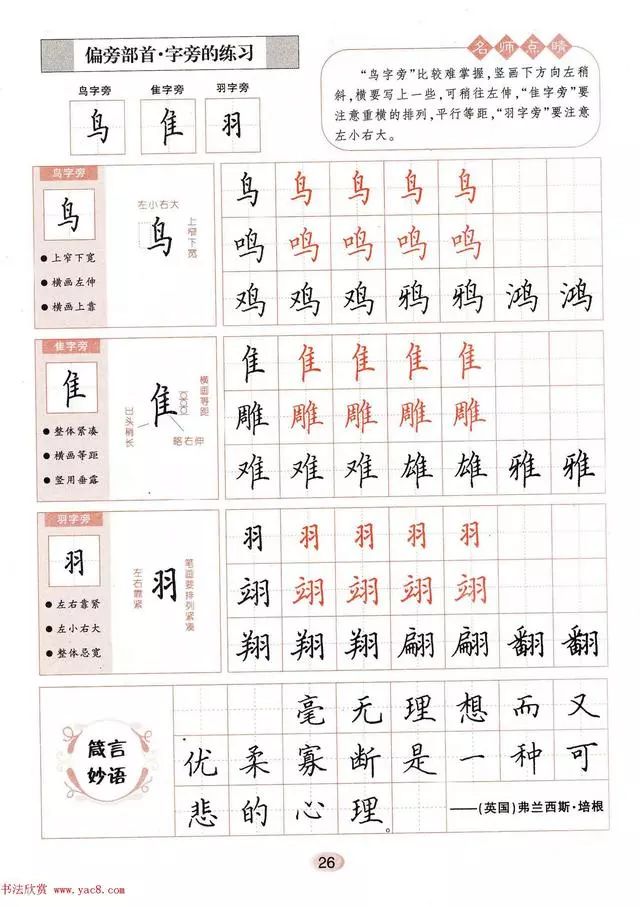 偏旁部首·字旁的练习
名师点睛
“鸟字旁”比较难掌握,竖画下方向左稍
斜,横要写上一些,可稍往左伸,“隹字旁”要
注意重横的排列,平行等距,“羽字旁”要注意
左小右大。
鸟字旁 隹字旁 羽字旁
鸟 隹 羽
鸟字旁
鸟
● 上窄下宽
● 横画左伸
● 横画上靠
左小右大
上窄下宽
鸟
鸟 鸟 鸟 鸟 鸟
鸣 鸣 鸣 鸣 鸣
鸡 鸡 鸡 鸦 鸦 鸿 鸿
隹字旁
隹
● 整体紧凑
● 横画等距
● 竖用垂露
横画等距
隹
略右伸
隹 隹 隹 隹 隹
雕 雕 雕 雕 雕
难 难 难 雄 雄 雅 雅
羽字旁
羽
● 左右靠紧
● 左小右大
● 整体忌宽
左右靠紧
羽
笔画要排列紧凑
羽 羽 羽 羽 羽
翊 翊 翊 翊 翊
翔 翔 翔 翩 翩 翻 翻
箴言
妙语
毫无理想而又
优柔寡断是一种可
悲的心理。
——(英国)弗兰西斯·培根
26
书法欣赏 www.yac8.com